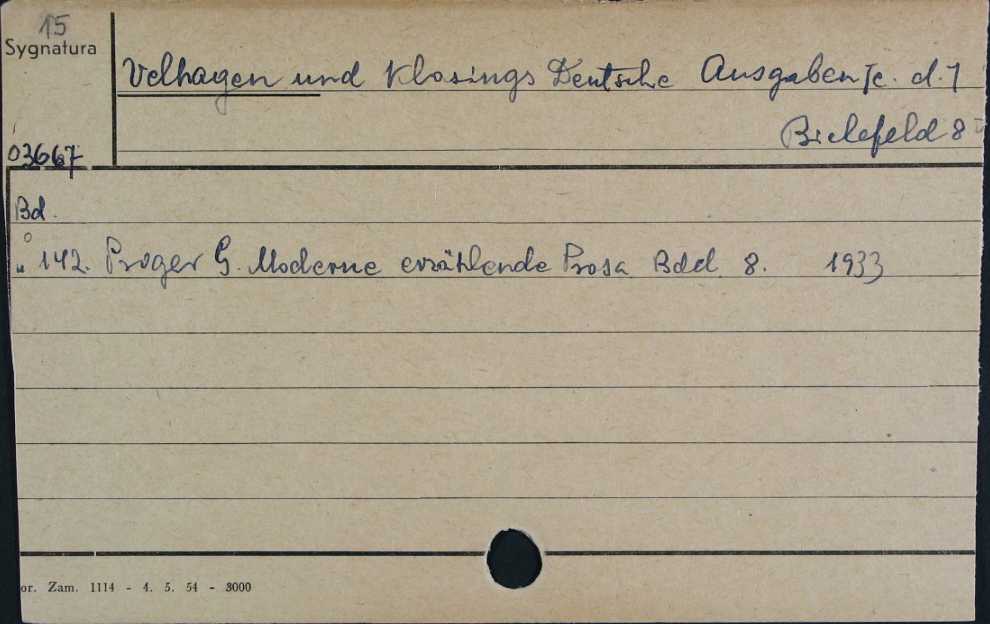 15
Sygnatura
Velhagen und Klosings Deutsche Ausgaben [c. d.]
Bielefeld 8°
03667
Bd.
" 142. Proger G. Moderne erzählende Prosa Bdd 8. 1933
or. Zam. 1114 - 4. 5. 54 - 3000